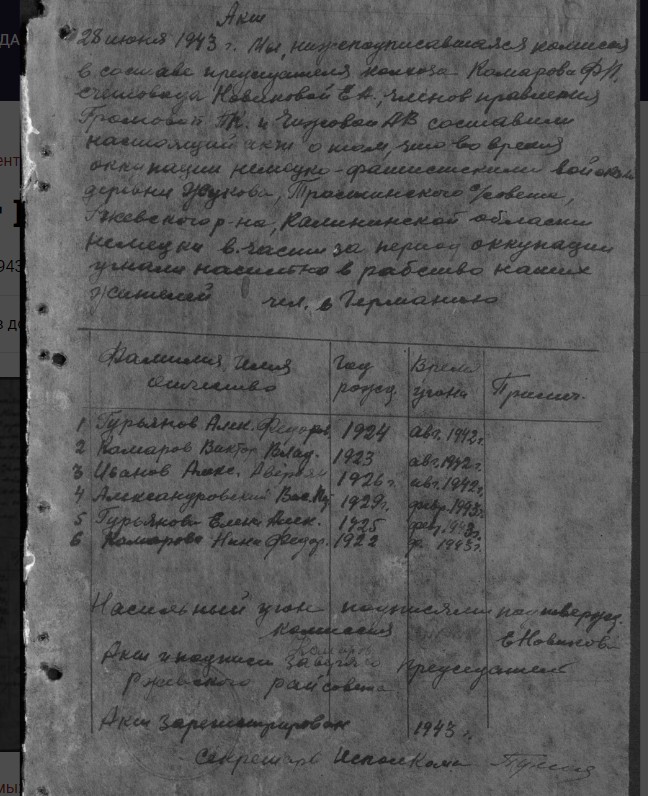 Акт
28 июня 1943 г. Мы, нижеподписавшаяся комиссия
в составе председателя колхоза Комарова Ф.И.
счетовода Новиковой Е.А., членов правления
Громовой П.К. и АВ составили
настоящий акт о том, что во время
оккупации немецко-фашистскими войсками
деревни Жуково, Тростинского с/совета,
Ржевского р-на, Калининской области
немецки в. части за период оккупации
угнали насильно в рабство наших
жителей чел. в Германию
Фамилия Имя
отчество
Год
рожд.
Время
угона
Примеч.
1 Гурьянов Алек. Федоров. 1924 авг. 1942 г.
2 Комаров Виктор Влад. 1923 авг. 1942 г.
3 Иванов Алекс. 1926 г. авг. 1942 г.
4 Александровский Вас. 1929 г. февр. 1943 г.
5 Гурьянова Елена Алек. 1925 фев. 1943 г.
6 Комарова Нина Федор. 1922 ф. 1943 г.
Насильный угон подписями подтвержд.
комиссия
Комаров
Е Новиков
Акт и подписи заверяю председатель
Ржевского райсовета
Акт зарегистрирован 1943 г.
Секретарь Исполкома